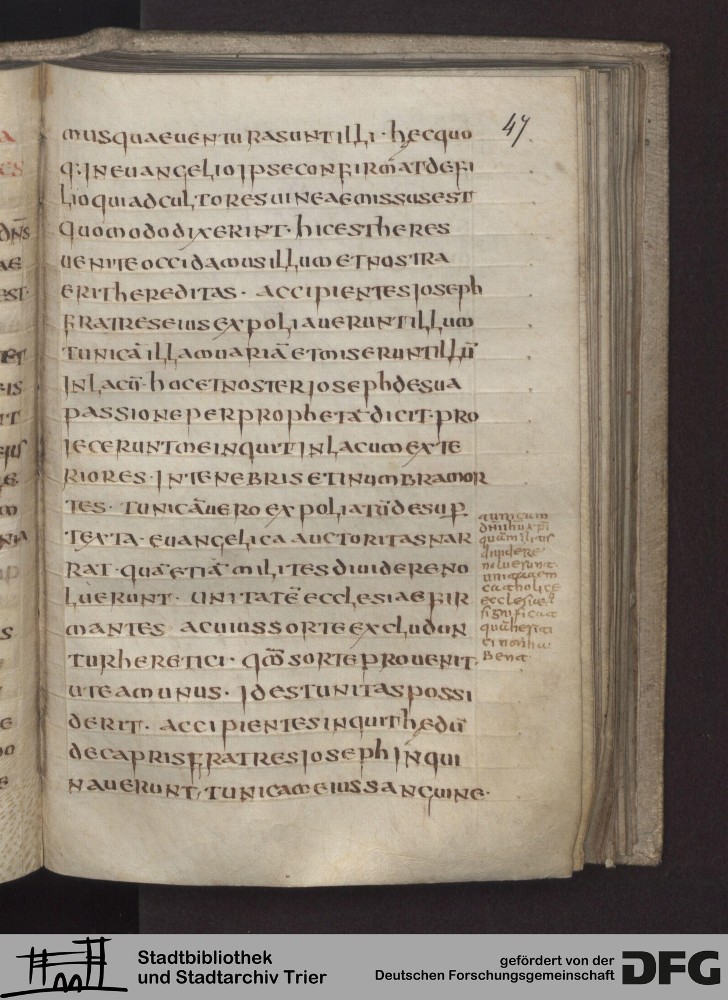 47
musquaeuenturasuntilli· hecquo
q;ineuangelioipseconfirmatdefi
lioquiadcultoresuineaemissusest
quomododixerint· hicestheres
ueniteoccidamusillumetnostra
erithereditas· accipientesioseph
fratreseiusexpoliaueruntillum
tunicāillamuariāetmiseruntillū
inlacū· hocetnosteriosephdesua
passioneperprophetādicit·pro
ieceruntmeinquitinlacumexte
riores· intenebrisetinumbramor
tes· tunicāueroexpoliatūdesup̱
texta· euangelicaauctoritasnar
rat· quāetiāmilitesdiuidereno
luerunt· unitatēecclesiaefir
mantes acuiussorteexcludun
turheretici· qm̄sorteprouenit
uteamunus· idestunitaspossi
derit· accipientesinquithedū
decaprisfratresiosephinqui
nauerunt, tunicameiussanguine·
tunicam
quāmilites
diuidere
noluerunt·
unitatem
catholice
ecclesiae
significat
quāhereti
ci nonha
bent·
Stadtbibliothek
und Stadtarchiv Trier
gefördert von der
Deutschen Forschungsgemeinschaft
DFG